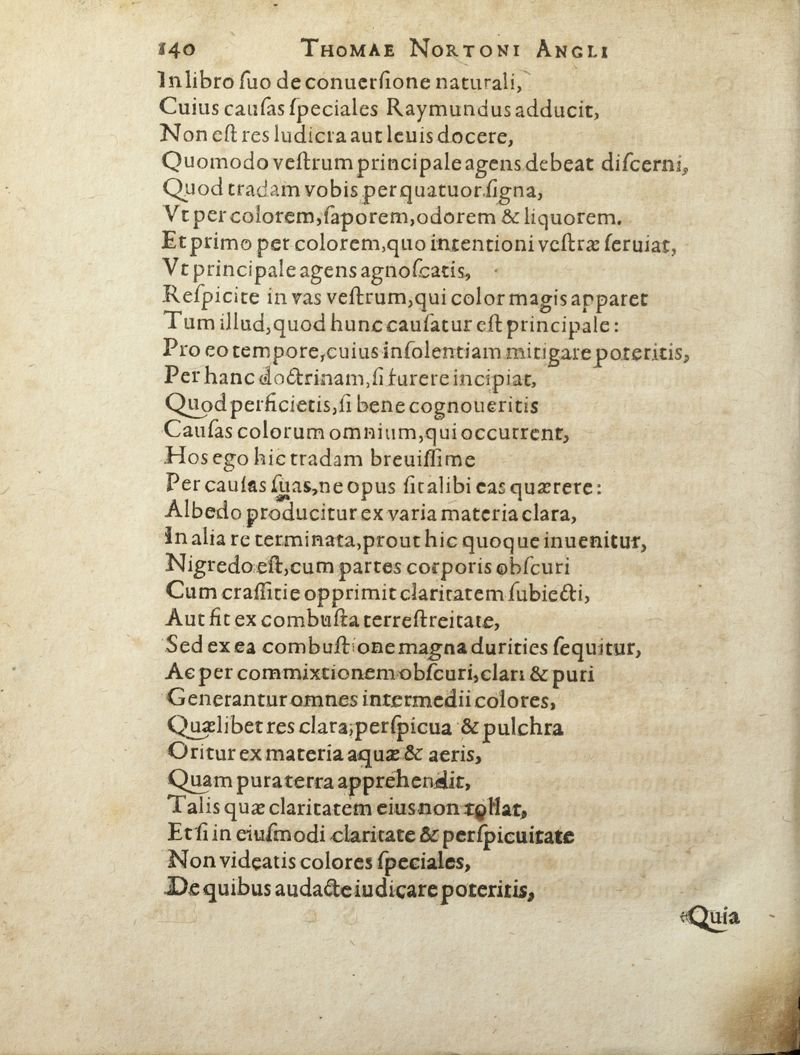 140 THOMAE NORTONI ANGLI
In libro ſuo de conuerſione naturali,
Cuius cauſas ſpeciales Raymundus adducit,
Non eſt res ludicra aut leuis docere,
Quomodo veſtrum principale agens debeat diſcerni,
Quod tradam vobis per quatuor ſigna,
Vt per colorem, ſaporem, odorem & liquorem.
Et primo per colorem, quo intentioni veſtræ ſeruiat,
Vt principale agens agnoſcatis,
Reſpicite in vas veſtrum, qui color magis apparet
Tum illud, quod hunc cauſatur eſt principale:
Pro eo tempore, cuius inſolentiam mitigare poteritis,
Per hanc doctrinam, ſi furere incipiat,
Quod perficietis, ſi bene cognoueritis
Cauſas colorum omnium, qui occurrent,
Hos ego hic tradam breuiſſime
Per cauſas ſuas, ne opus ſit alibi eas quærere:
Albedo producitur ex varia materia clara,
In alia re terminata, prout hic quoque inuenitur,
Nigredo eſt, cum partes corporis obſcuri
Cum craſſitie opprimit claritatem ſubiecti,
Aut fit ex combuſta terreſtreitate,
Sed ex ea combuſtione magna durities ſequitur,
Ac per commixtionem obſcuri, clari & puri
Generantur omnes intermedii colores,
Quælibet res clara, perſpicua & pulchra
Oritur ex materia aquæ & aeris,
Quam pura terra apprehendit,
Talis quæ claritatem eius non tollat,
Et ſi in eiuſmodi claritate & perſpicuitate
Non videatis colores ſpeciales,
De quibus audacte iudicare poteritis,
Quia